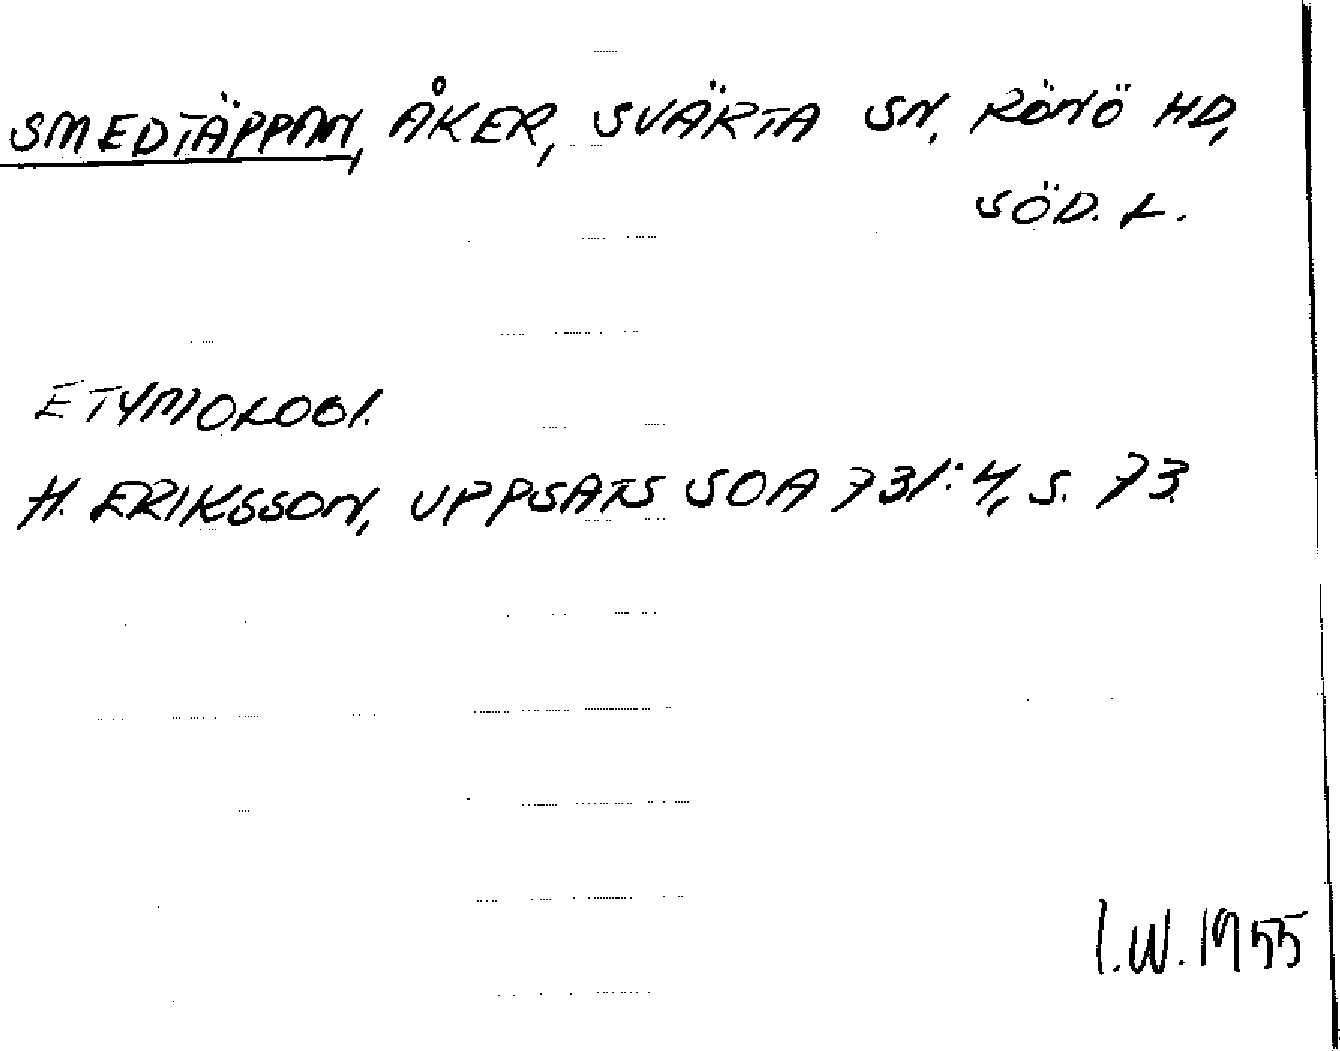 SMEDTÄPPAN, ÅKER, SVÄRTA SN, RÖNÖ HD,
SÖD. L.
ETYMOLOGI.
H. ERIKSSON, UPPSATS SOA 731:4, S. 73.
I.W. 1955